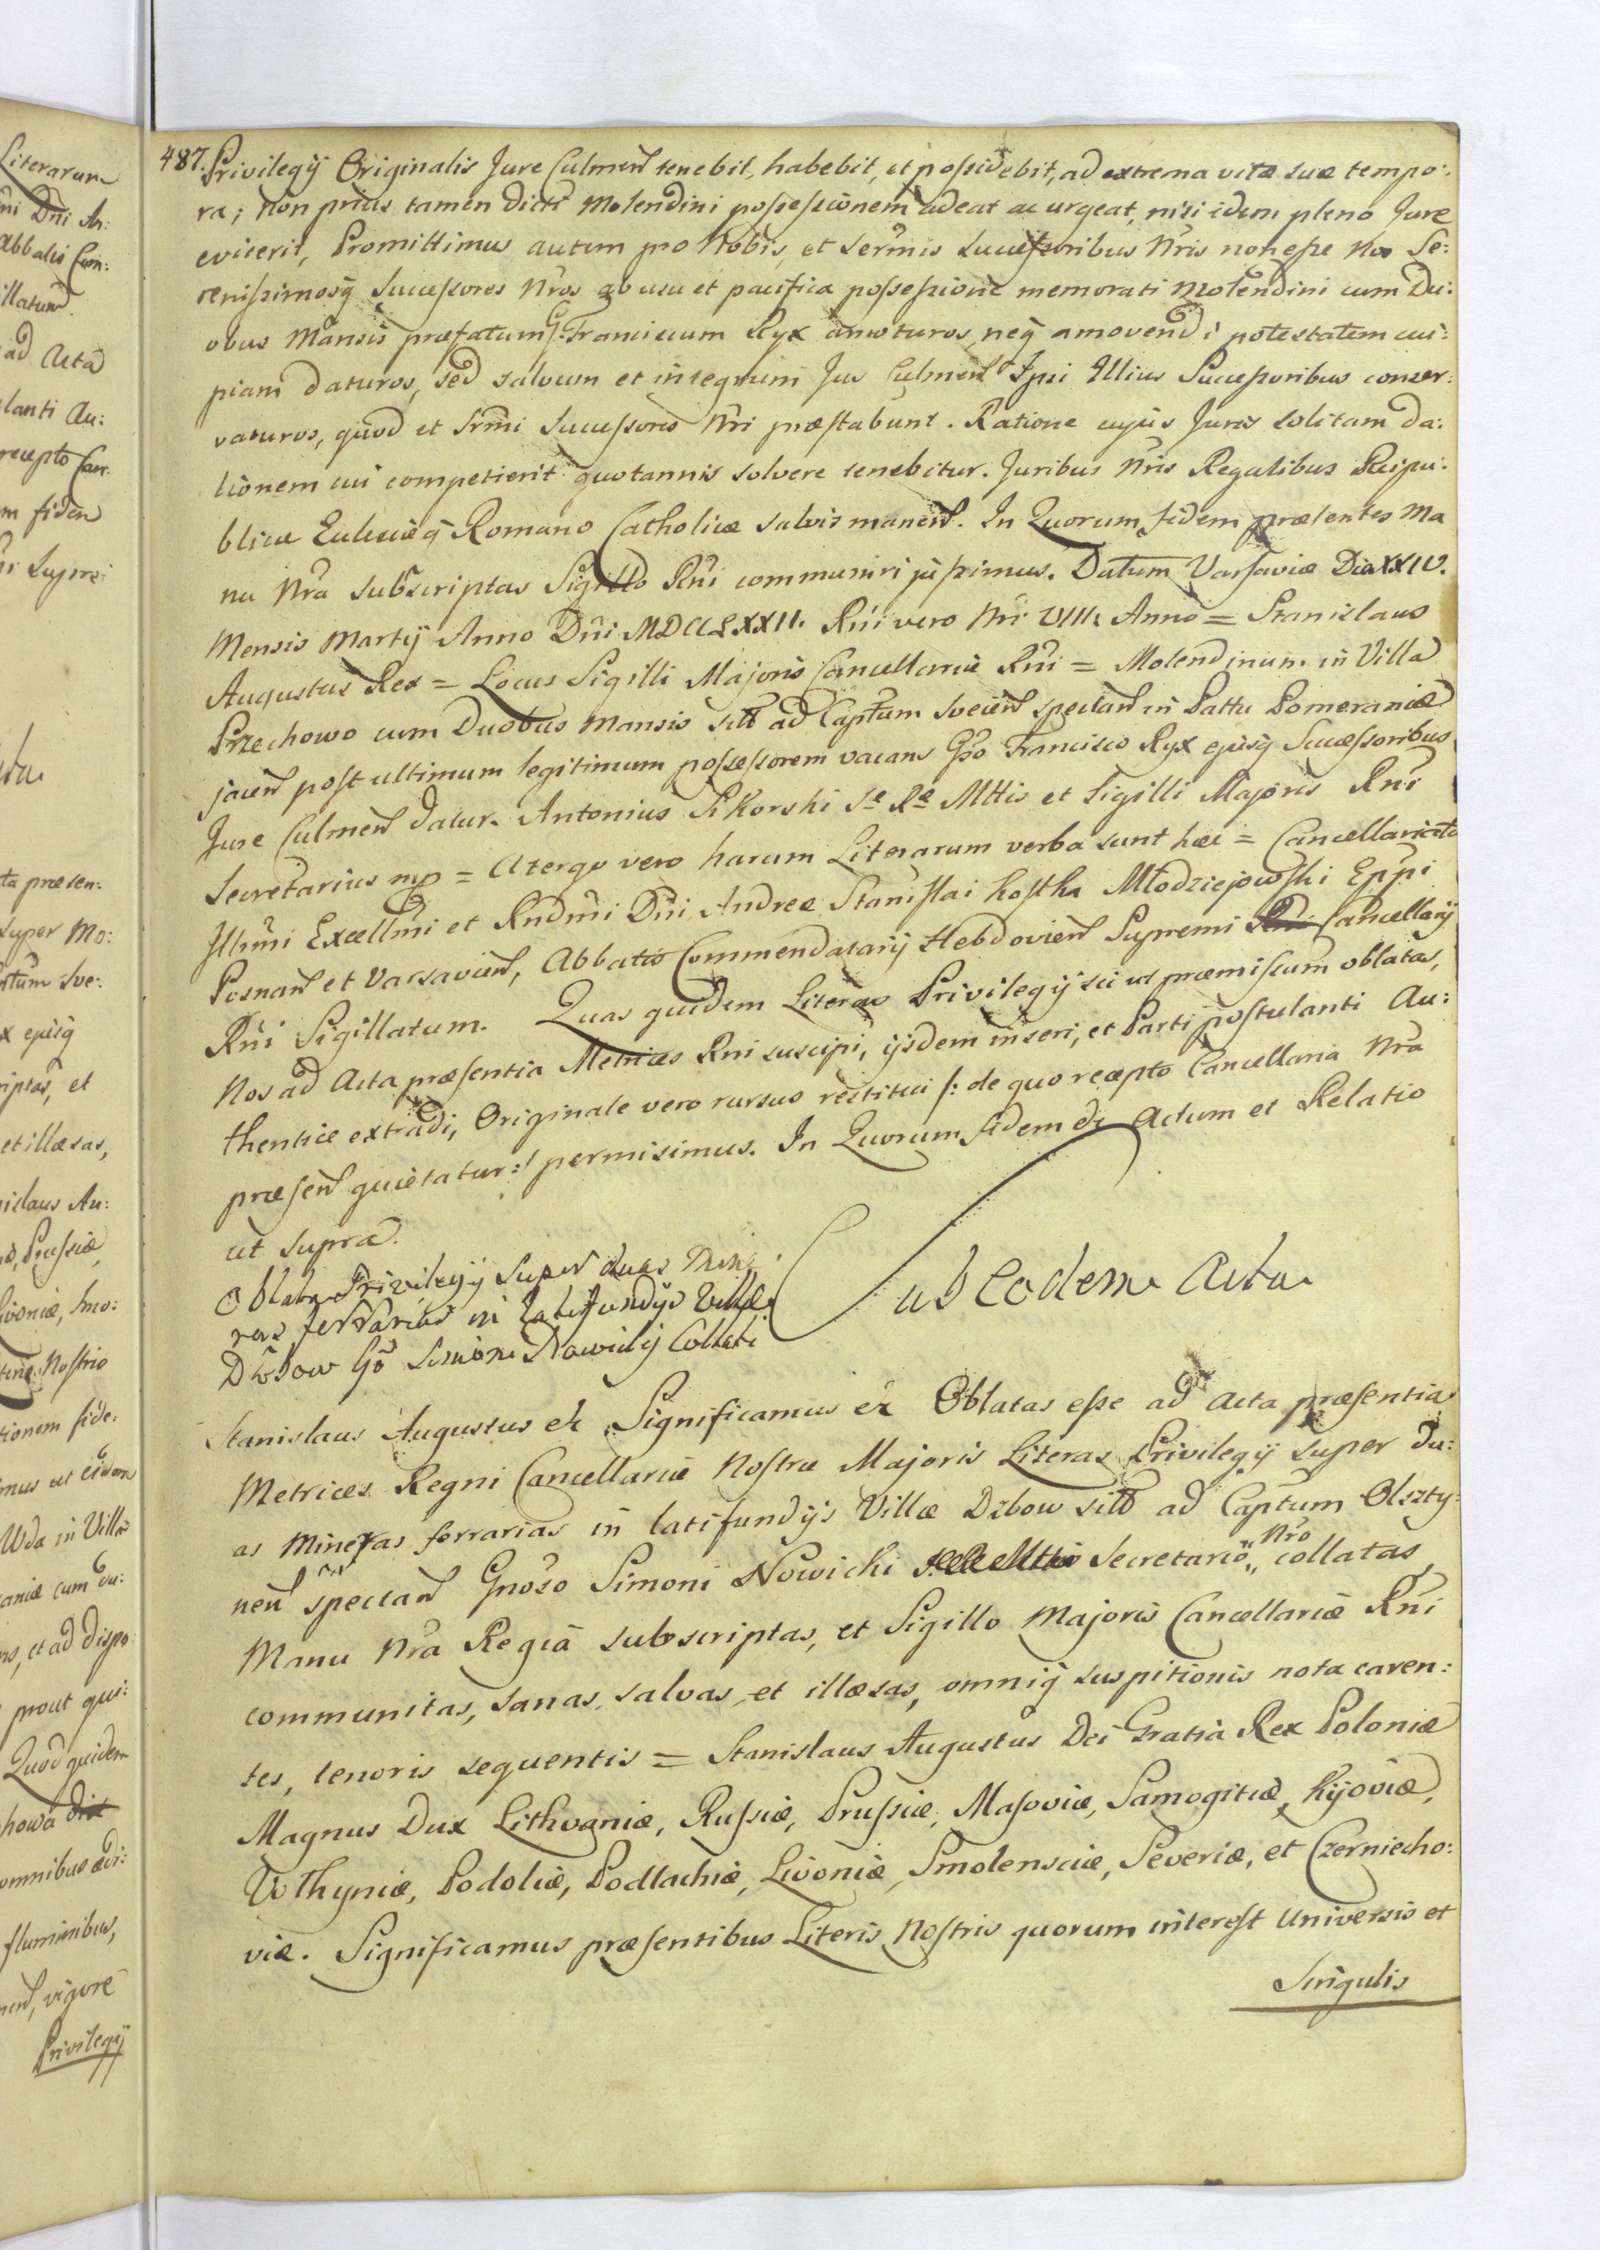 Literarum
ni Dni An:
Abbatis Com:
illatum.
ad Acta
lanti Au:
recepto Can:
m fidem
Supre:
ta præsen:
super Mo:
ptum Sve:
x ejusq
riptas, et
et illæsas,
nislaus Au:
Prussiæ,
ivoniæ, Smo:
Nostris
tionem fide:
mus ut eidem
Wda in Villa
aniæ cum du:
et ad dispo
prout qui:
Quod quidem
howa dict
omnibus ædi:
fluminibus,
vigore
Privilegij
487. Privilegij Originalis Jure Culmeñ tenebit, habebit, et possidebit, ad extrema vitæ suæ tempo:
ra; non prius tamen dicti Molendini possessionem adeat ac urgeat, nisi idem pleno Jure
evicerit, Promittimus autem pro Nobis, et Sermis Successoribus Nris non esse Nos Se:
renissimosq Successores Nros ab usu et pacifica possessione memorati Molendini cum Du:
obus Mansis præfatum G. Franciscum Ryx amoturos, neq amovendi potestatem cui:
piam daturos, sed salvum et integrum Jus Culmeñ Ipsi Illius Successoribus conser:
vaturos, quod et Srmi Successores Nri præstabunt. Ratione cujus Juris solitam da:
tionem cui competierit quotannis solvere tenebitur. Juribus Nris Regalibus Reipu:
blicæ Ecclesiæq Romano Catholicæ salvis maneñ. In Quorum fidem præsentes Ma
nu Nra subscriptas Sigillo Rni communiri jussimus. Datum Varsaviæ Die XXIV.
Mensis Martij Anno Dni MDCCLXXII. Rni vero Nri VIII. Anno = Stanislaus
Augustus Rex = Locus Sigilli Majoris Cancellariæ Rni = Molendinum in Villa
Przechowo cum Duobus Mansis sitt ad Capttum Sveceñ spectañ in Pattu Pomeraniæ
jaceñ post ultimum legitimum possessorem vacans Gso Francisco Ryx ejusq Successoribus
Jure Culmeñ datur. Antonius Sikorski Se Re Mttis et Sigilli Majoris Rni
Secretarius mp = Atergo vero harum Literarum verba sunt hæc = Cancellariatu
Illmi Excellmi et Rndmi Dni Andreæ Stanislai Kostka Młodziejowski Eppi
Posnañ et Varsavieñ, Abbatis Commendatarij Hebdovieñ Supremi Rni Cancellarij
Rni Sigillatum. Quas quidem Literas Privilegij sic ut præmissum oblatas,
Nos ad Acta præsentia Metrices Rni suscipi, ijsdem inseri, et Parti postulanti Au:
thentice extradi, Originale vero rursus restitui /: de quo recepto Cancellaria Nra
præseñ quietatur :/ permisimus. In Quorum fidem etc Actum et Relatio
ut supra.
Oblata Privilegij super duas Mine
ras ferrarias in Latifundijs Villæ
Dzbow Go Simoni Nowicki Collati
Sub eodem Actu
Stanislaus Augustus etc Significamus etc Oblatas esse ad Acta præsentia
Metrices Regni Cancellariæ Nostræ Majoris Literas Privilegij super du:
as Mineras ferrarias in latifundijs Villæ Dzbow sitt ad Capttum Olszty:
neñ spectañ Gnoso Simoni Nowicki Secretario Nro collatas,
Manu Nra Regia subscriptas, et Sigillo Majoris Cancellariæ Rni
communitas, sanas, salvas, et illæsas, omniq suspitionis nota caren:
tes, tenoris sequentis = Stanislaus Augustus Dei Gratia Rex Poloniæ
Magnus Dux Lithvaniæ, Russiæ, Prussiæ, Masoviæ, Samogitiæ, Kijoviæ,
Volhyniæ, Podoliæ, Podlachiæ, Livoniæ, Smolensciæ, Severiæ, et Czerniecho:
viæ. Significamus præsentibus Literis Nostris quorum interest Universis et
Singulis